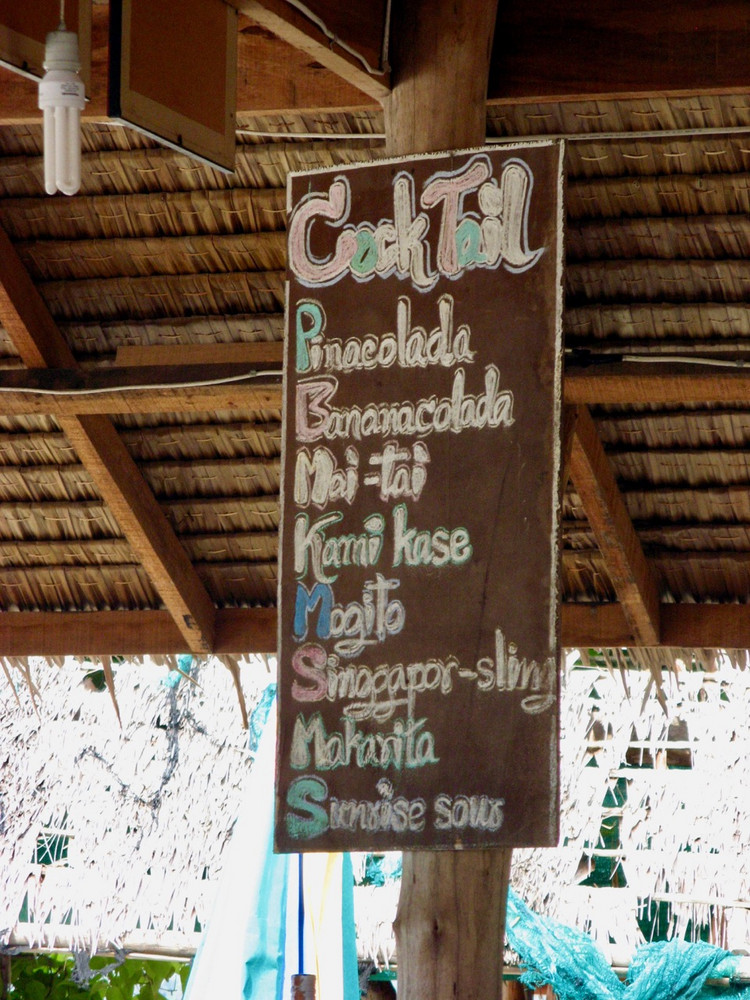 CockTail
Pinacolada
Bananacolada
Mai-tai
Kami kase
Mogito
Singgapor-sling
Makarita
Sunrise sour